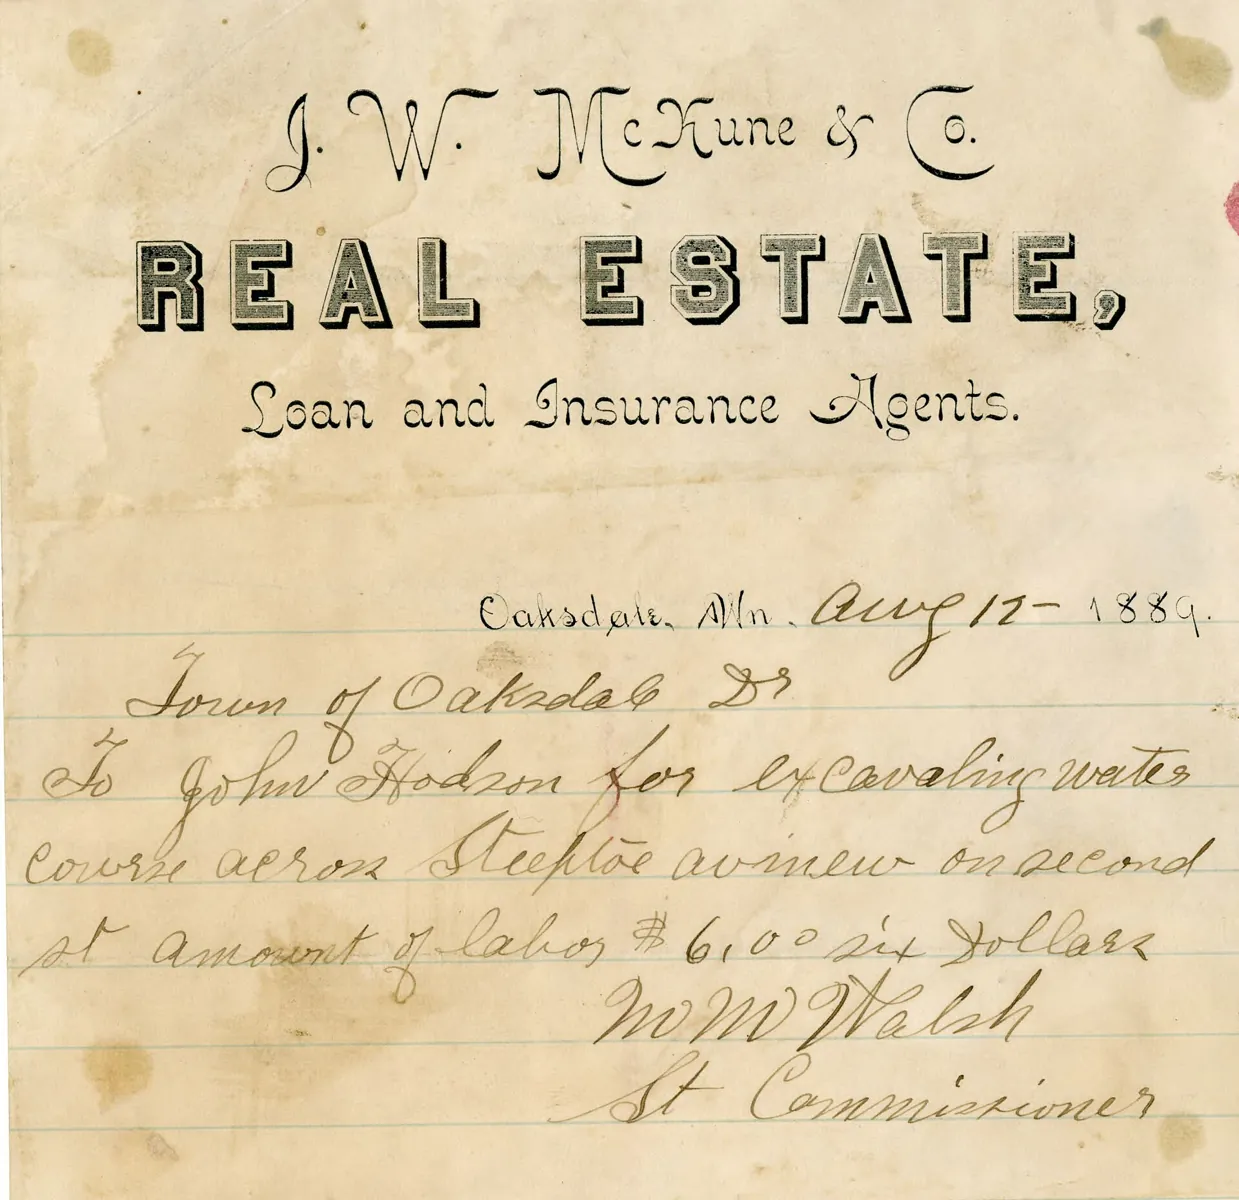 J. W. McKune & Co.
REAL ESTATE,
Loan and Insurance Agents.
Oaksdale, Wn. Aug 12- 1889.
Town of Oaksdale Dr
To John Hodson for excavating water
course across Steeptoe avinew on second
st amount of labor $6.00 six Dollars
M M Walsh
St Commissioner